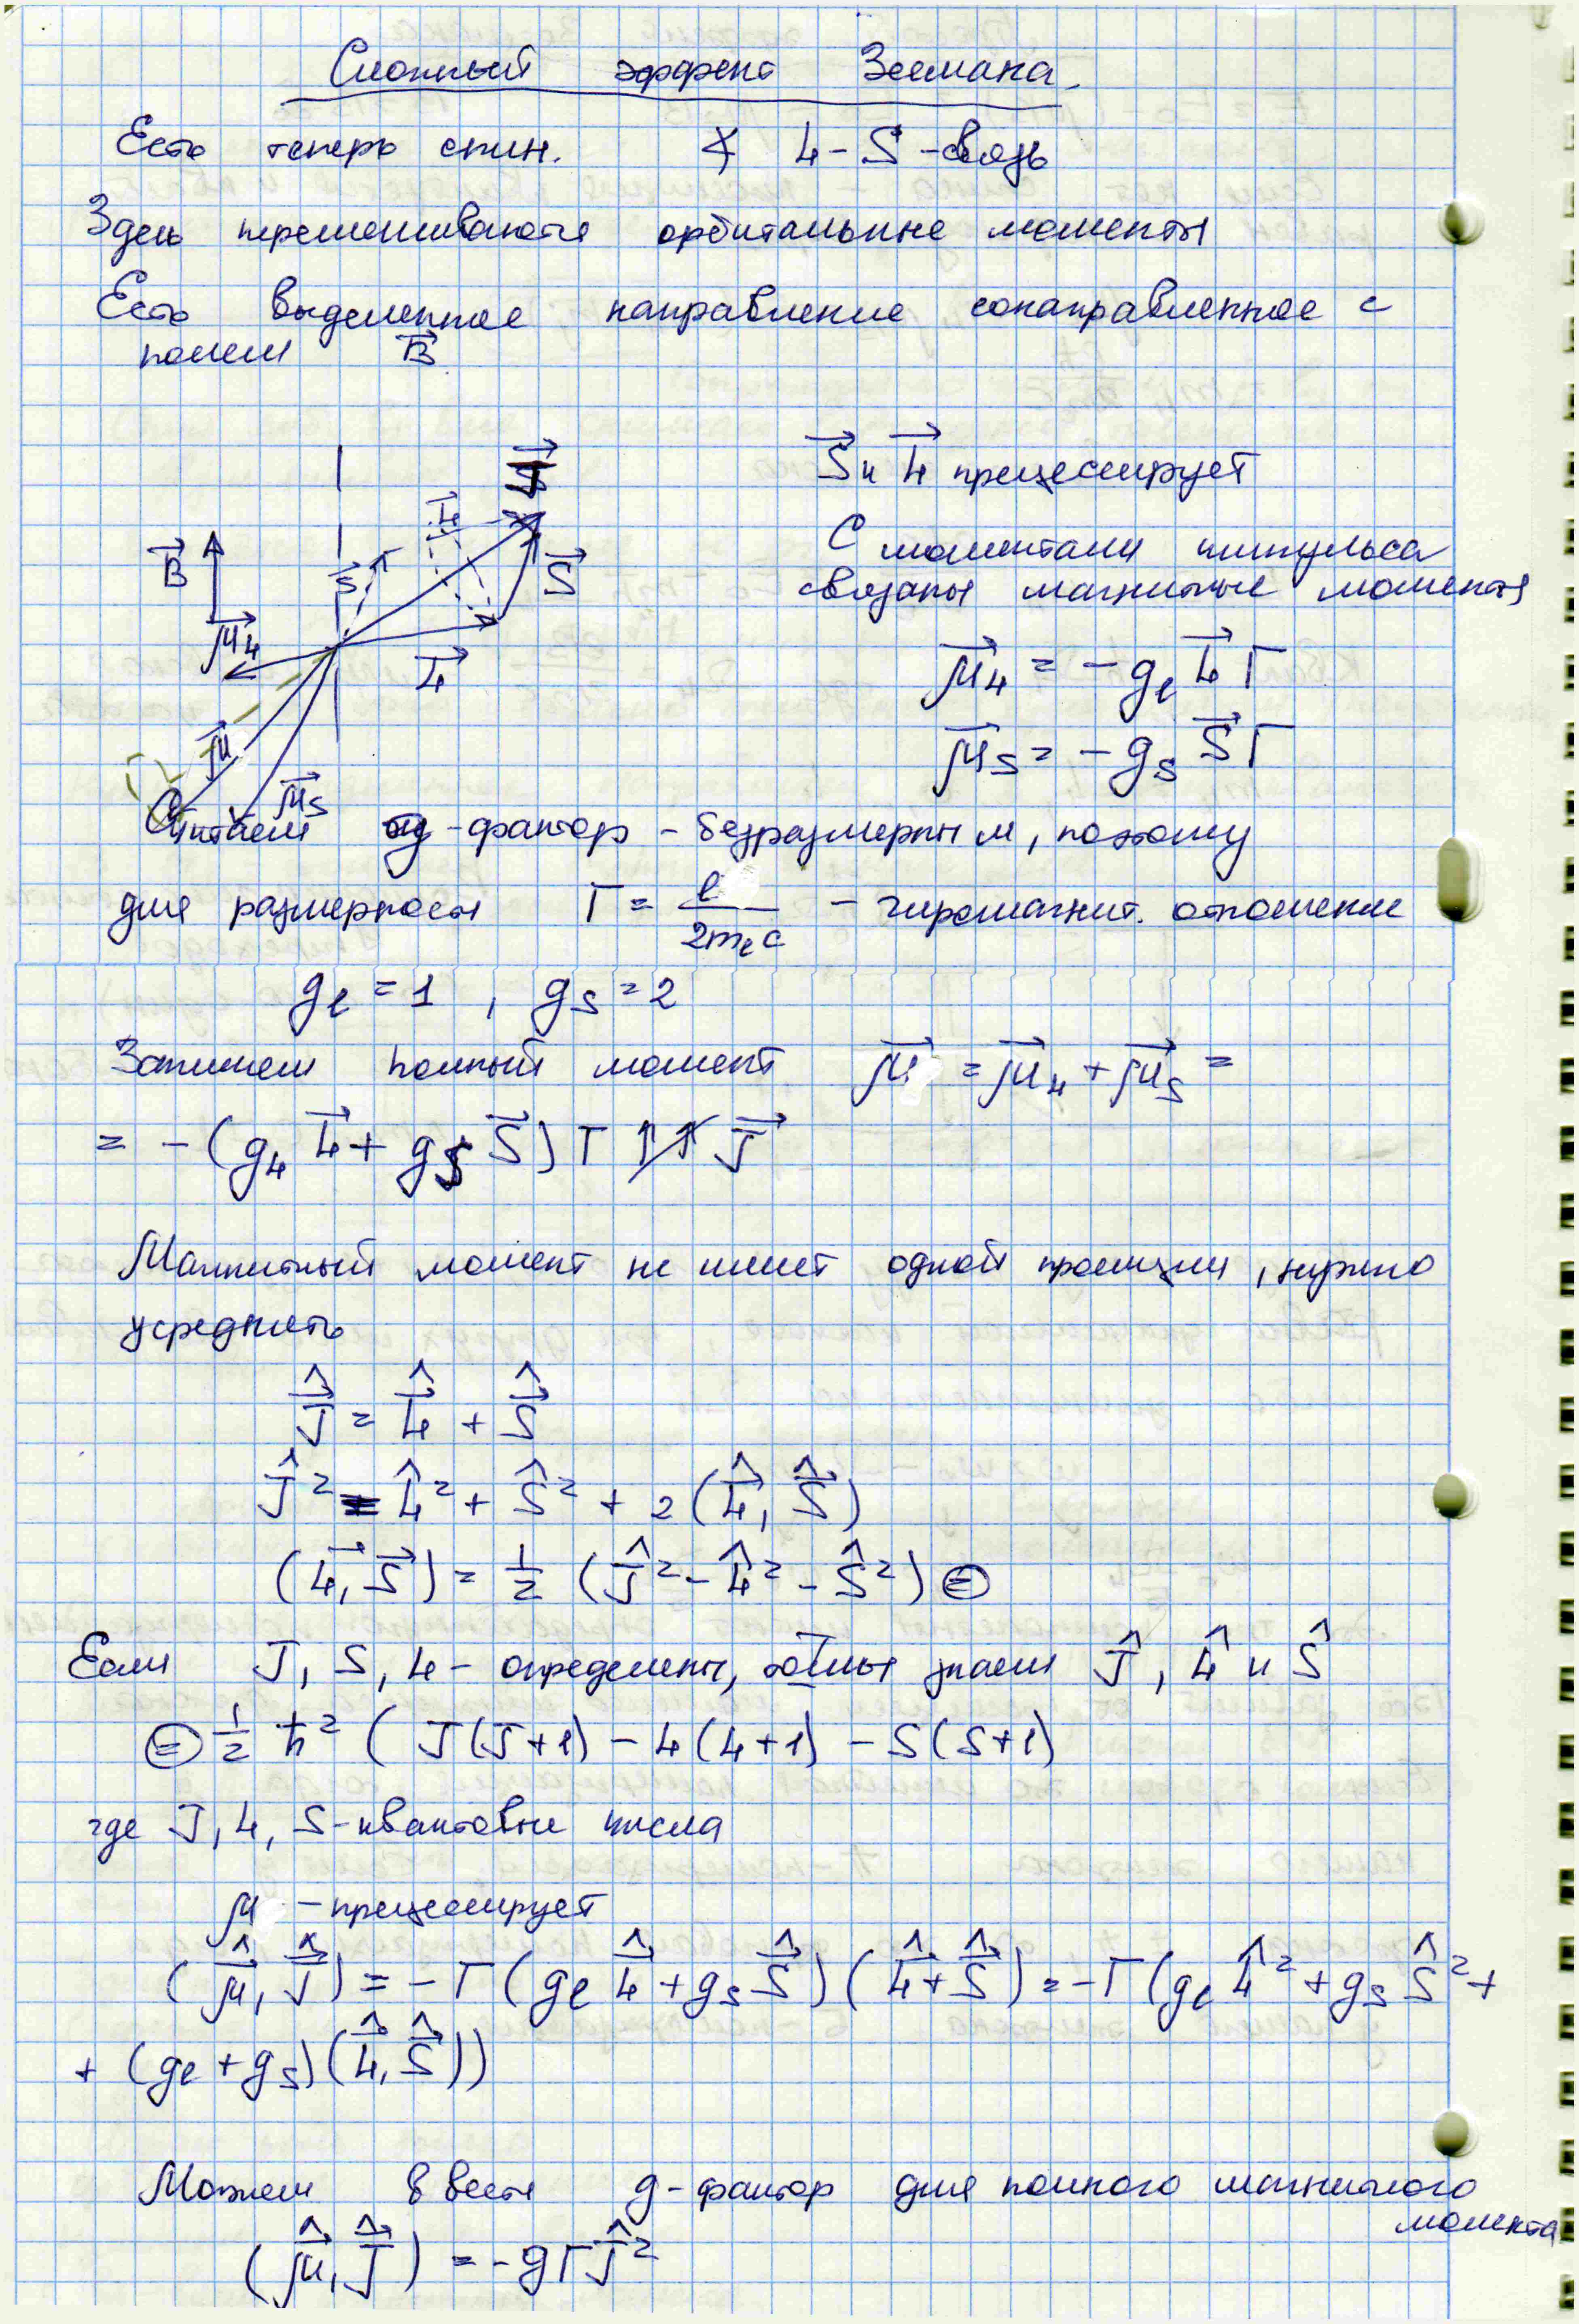 Сложный эффект Зеемана.
Есть теперь спин. ∀ L-S-связь
Здесь перемешиваются орбитальные моменты
Есть выделенное направление сонаправленное с
полем B⃗
S⃗ и L⃗ прецессирует
С моментами импульса
связаны магнитные моменты
B⃗ S⃗ L⃗ J⃗ S⃗
μ⃗_L L⃗
μ⃗_L = -g_l L⃗ Γ
μ⃗_S = -g_s S⃗ Γ
μ⃗ μ⃗_S
Считаем g-фактор - безразмерным, поэтому
для размерности Γ = e/(2m_e c) - гиромагнит. отношение
g_l = 1, g_s = 2
Запишем полный момент μ⃗ = μ⃗_L + μ⃗_S =
= -(g_L L⃗ + g_S S⃗) Γ ↑̸↑ J⃗
Магнитный момент не имеет одной проекции, нужно
усреднить
Ĵ⃗ = L̂⃗ + Ŝ⃗
Ĵ² = L̂² + Ŝ² + 2(L̂⃗, Ŝ⃗)
(L⃗, S⃗) = 1/2 (Ĵ² - L̂² - Ŝ²) ⊜
Если J, S, L - определены, знаем Ĵ, L̂ и Ŝ
⊜ 1/2 ħ² (J(J+1) - L(L+1) - S(S+1)
где J, L, S - квантовые числа
μ - прецессирует
(μ̂⃗, Ĵ⃗) = -Γ(g_l L̂⃗ + g_s Ŝ⃗)(L̂⃗ + Ŝ⃗) = -Γ(g_l L̂² + g_s Ŝ² +
+ (g_l + g_s)(L̂⃗, Ŝ⃗))
Можем ввести g-фактор для полного магнитного
момента
(μ̂⃗, Ĵ⃗) = -gΓĴ²